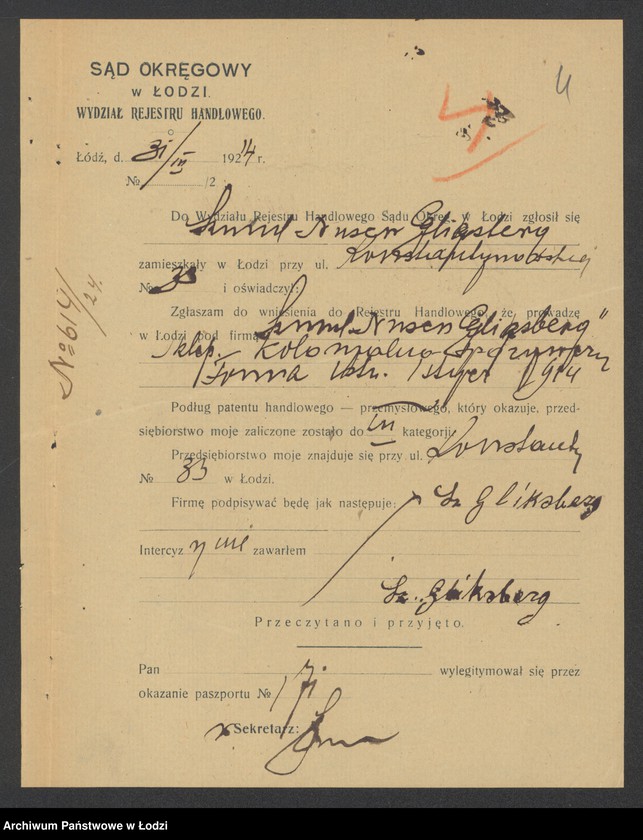 SĄD OKRĘGOWY
w ŁODZI.
WYDZIAŁ REJESTRU HANDLOWEGO.
4
Łódź, d. 31/III 1924 r.
№ /2
Do Wydziału Rejestru Handlowego Sądu Okręg. w Łodzi zgłosił się
Szmul Nusen Gliksberg
zamieszkały w Łodzi przy ul. Konstantynowskiej
№ 33 i oświadczył:
Zgłaszam do wniesienia do Rejestru Handlowego, że prowadzę
w Łodzi pod firmą „Szmul Nusen Gliksberg"
Sklep kolonialno spożywczy
Firma istn. 1914
Podług patentu handlowego — przemysłowego, który okazuje, przed-
siębiorstwo moje zaliczone zostało do III kategorji
Przedsiębiorstwo moje znajduje się przy ul. Konstanty
№ 33 w Łodzi.
Firmę podpisywać będę jak następuje: Sz Gliksberg
Intercyz y nie zawarłem
Sz. Gliksberg
Przeczytano i przyjęto.
Pan wylegitymował się przez
okazanie paszportu №
Sekretarz:
№ 614/24.
Archiwum Państwowe w Łodzi